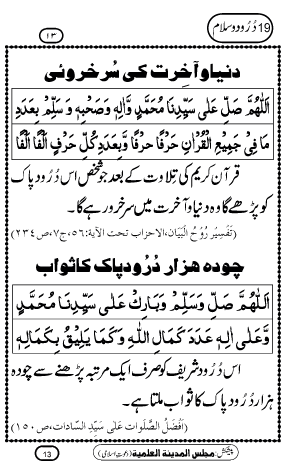 19 دُرُود و سلام ١٣
دنیا و آخرت کی سُرخروئی
اَللّٰهُمَّ صَلِّ عَلٰى سَيِّدِنَا مُحَمَّدٍ وَّاٰلِهٖ وَصَحْبِهٖ وَسَلِّمْ بِعَدَدِ
مَا فِىْ جَمِيْعِ الْقُرْاٰنِ حَرْفًا حَرْفًا وَّبِعَدَدِ كُلِّ حَرْفٍ اَلْفًا اَلْفًا
قرآنِ کریم کی تِلاوت کے بعد جو شخص اس دُرُودِ پاک
کو پڑھے گا وہ دنیا و آخرت میں سرخرو رہے گا۔
(تفسیر رُوْحُ الْبَیَان، الاحزاب تحت الآیة: 56، ج٧، ص ٢٣٤)
چودہ ہزار دُرُودِ پاک کا ثواب
اَللّٰهُمَّ صَلِّ وَسَلِّمْ وَبَارِكْ عَلٰى سَيِّدِنَا مُحَمَّدٍ
وَّعَلٰى اٰلِهٖ عَدَدَ كَمَالِ اللّٰهِ وَكَمَا يَلِيْقُ بِكَمَالِهٖ
اس دُرُود شریف کو صرف ایک مرتبہ پڑھنے سے چودہ
ہزار دُرُودِ پاک کا ثواب ملتا ہے۔
(اَفْضَلُ الصَّلَوات عَلٰی سَیِّدِ السَّادات، ص ١٥٠)
پیشکش: مجلس المدینة العلمیة (دعوتِ اسلامی) 13